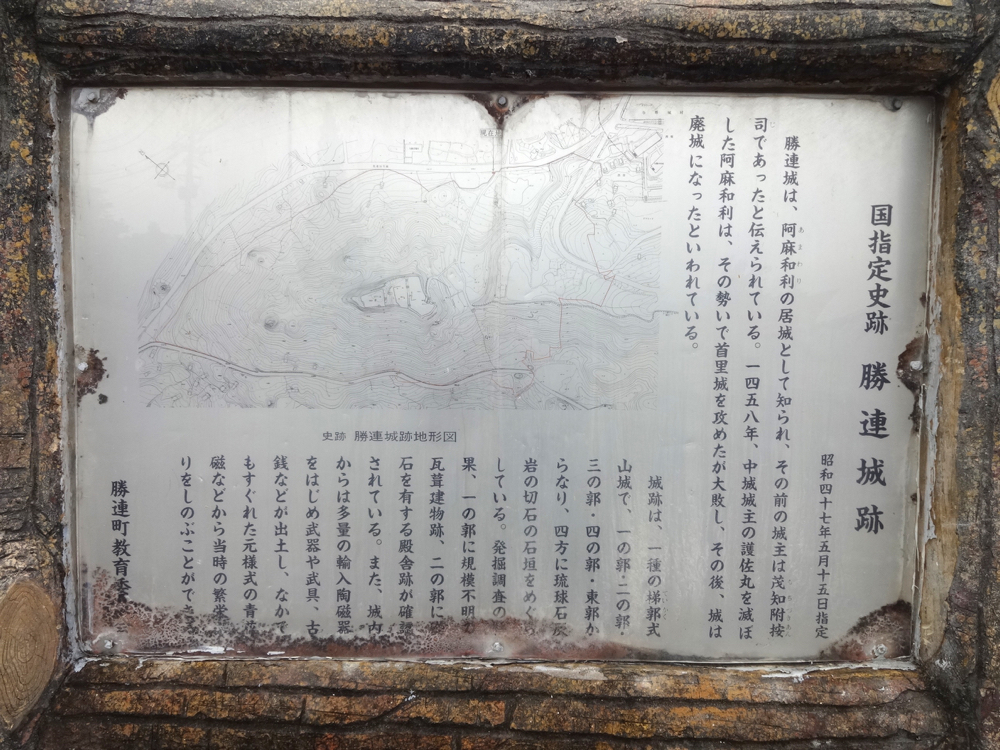 国指定史跡 勝連城跡
昭和四十七年五月十五日指定
勝連城は、阿麻和利の居城として知られ、その前の城主は茂知附按
司であったと伝えられている。一四五八年、中城城主の護佐丸を滅ぼ
した阿麻和利は、その勢いで首里城を攻めたが大敗し、その後、城は
廃城になったといわれている。
現在
史跡 勝連城跡地形図
城跡は、一種の梯郭式
山城で、一の郭・二の郭・
三の郭・四の郭・東郭か
らなり、四方に琉球石灰
岩の切石の石垣をめぐら
している。発掘調査の
果、一の郭に規模不明
瓦葺建物跡、二の郭に
石を有する殿舎跡が確
されている。また、城内
からは多量の輸入陶磁器
をはじめ武器や武具、古
銭などが出土し、なかで
もすぐれた元様式の青
磁などから当時の繁栄
りをしのぶことができ
勝連町教育委